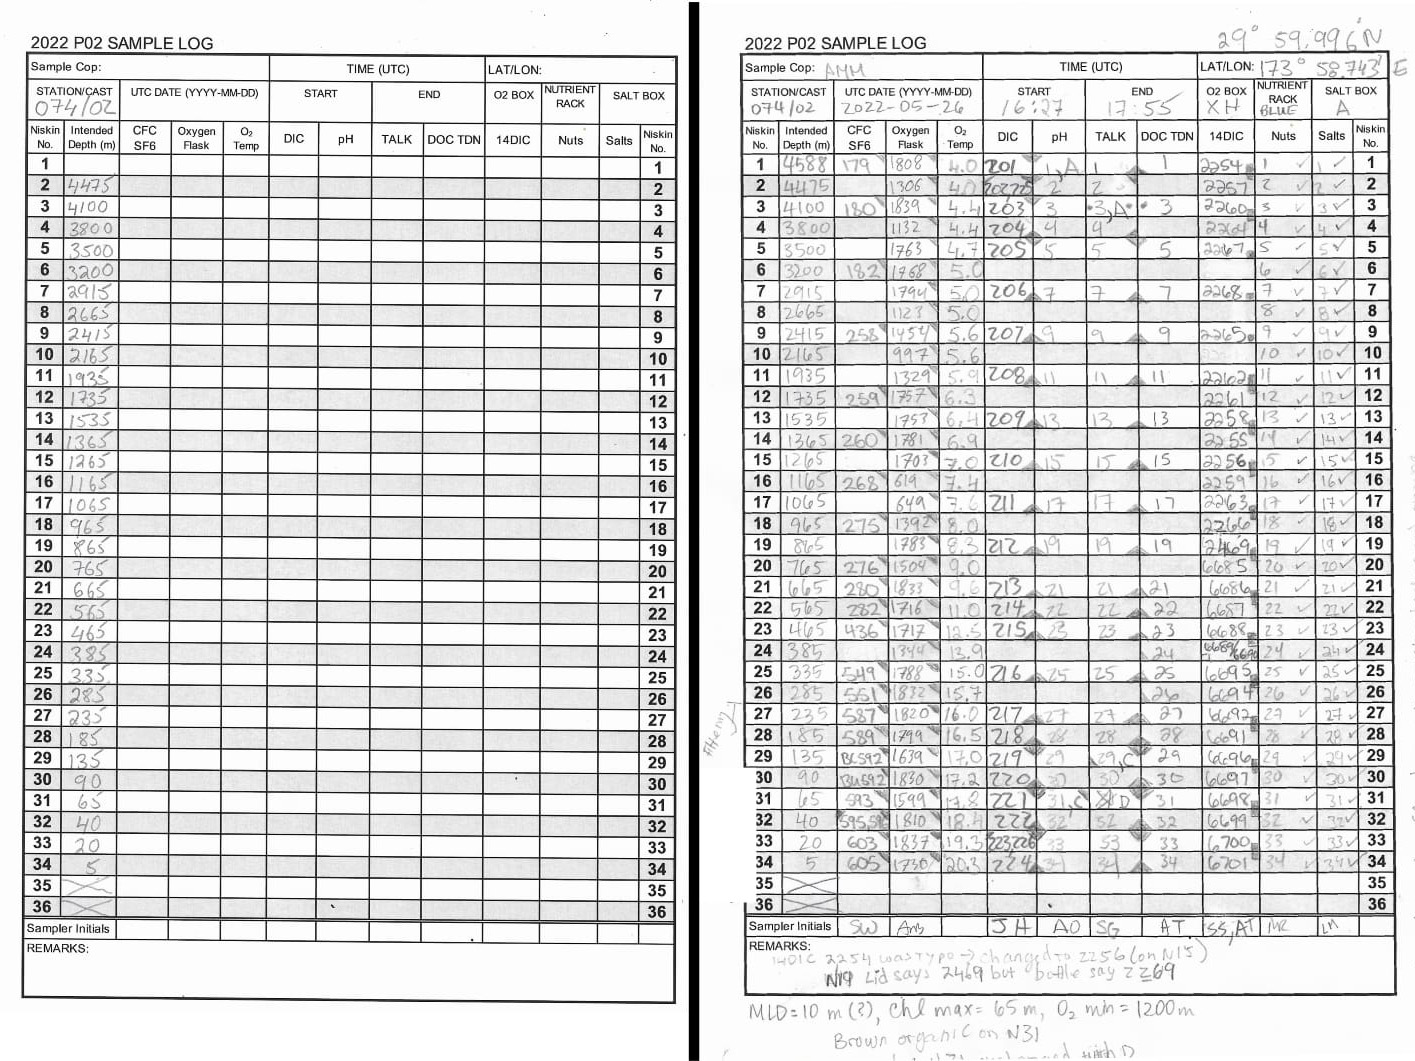 2022 P02 SAMPLE LOG
Sample Cop: TIME (UTC) LAT/LON:
STATION/CAST UTC DATE (YYYY-MM-DD) START END O2 BOX NUTRIENT RACK SALT BOX
074/02
Niskin No. Intended Depth (m) CFC SF6 Oxygen Flask O2 Temp DIC pH TALK DOC TDN 14DIC Nuts Salts Niskin No.
1 1
2 4475 2
3 4100 3
4 3800 4
5 3500 5
6 3200 6
7 2915 7
8 2665 8
9 2415 9
10 2165 10
11 1935 11
12 1735 12
13 1535 13
14 1365 14
15 1265 15
16 1165 16
17 1065 17
18 965 18
19 865 19
20 765 20
21 665 21
22 565 22
23 465 23
24 385 24
25 335 25
26 285 26
27 235 27
28 185 28
29 135 29
30 90 30
31 65 31
32 40 32
33 20 33
34 5 34
35 35
36 36
Sampler Initials
REMARKS:
29° 59.996'N
2022 P02 SAMPLE LOG
Sample Cop: AMM TIME (UTC) LAT/LON: 173° 58.743' E
STATION/CAST UTC DATE (YYYY-MM-DD) START END O2 BOX NUTRIENT RACK SALT BOX
074/02 2022-05-26 16:27 17:55 XH BLUE A
Niskin No. Intended Depth (m) CFC SF6 Oxygen Flask O2 Temp DIC pH TALK DOC TDN 14DIC Nuts Salts Niskin No.
1 4588 179 1808 4.0 201 1,A 1 1 2254 1 ✓ 1 ✓ 1
2 4475 1306 4.0 2 2 2257 2 ✓ 2 ✓ 2
3 4100 180 1839 4.4 203 3 3,A 3 2260 3 ✓ 3 ✓ 3
4 3800 1132 4.4 204 4 4 2264 4 ✓ 4 ✓ 4
5 3500 1763 4.7 205 5 5 5 2267 5 ✓ 5 ✓ 5
6 3200 182 1768 5.0 6 ✓ 6 ✓ 6
7 2915 1794 5.0 206 7 7 7 2268 7 ✓ 7 ✓ 7
8 2665 1123 5.0 8 ✓ 8 ✓ 8
9 2415 258 1454 5.6 207 9 9 9 2265 9 ✓ 9 ✓ 9
10 2165 997 5.6 10 ✓ 10 ✓ 10
11 1935 1329 5.9 208 11 11 11 2262 11 ✓ 11 ✓ 11
12 1735 259 1757 6.3 2261 12 ✓ 12 ✓ 12
13 1535 1753 6.4 209 13 13 13 2258 13 ✓ 13 ✓ 13
14 1365 260 1781 6.9 2255 14 ✓ 14 ✓ 14
15 1265 1703 7.0 210 15 15 15 2256 15 ✓ 15 ✓ 15
16 1165 268 619 7.4 2259 16 ✓ 16 ✓ 16
17 1065 649 7.6 211 17 17 17 2263 17 ✓ 17 ✓ 17
18 965 275 1392 8.0 2266 18 ✓ 18 ✓ 18
19 865 1783 8.3 212 19 19 19 2469 19 ✓ 19 ✓ 19
20 765 276 1504 9.0 6685 20 ✓ 20 ✓ 20
21 665 280 1833 9.6 213 21 21 21 6686 21 ✓ 21 ✓ 21
22 565 282 1716 11.0 214 22 22 22 6687 22 ✓ 22 ✓ 22
23 465 436 1717 12.5 215 23 23 23 6688 23 ✓ 23 ✓ 23
24 385 1344 13.9 24 24 ✓ 24 ✓ 24
25 335 549 1788 15.0 216 25 25 25 6695 25 ✓ 25 ✓ 25
26 285 551 1832 15.7 26 6694 26 ✓ 26 ✓ 26
27 235 587 1820 16.0 217 27 27 27 6692 27 ✓ 27 ✓ 27
28 185 589 1799 16.5 218 28 28 28 6691 28 ✓ 28 ✓ 28
29 135 1639 17.0 219 29 29,C 29 6696 29 ✓ 29 ✓ 29
30 90 1830 17.2 220 30 30 30 6697 30 ✓ 30 ✓ 30
31 65 593 1599 17.8 221 31,C D 31 6698 31 ✓ 31 ✓ 31
32 40 1810 18.4 222 32 32 32 6699 32 ✓ 32 ✓ 32
33 20 603 1837 19.3 33 33 33 6700 33 ✓ 33 ✓ 33
34 5 605 1730 20.3 224 34 34 34 6701 34 ✓ 34 ✓ 34
35 35
36 36
Sampler Initials SW JH AO SG AT SS, AT MR LM
REMARKS:
14DIC 2254 was TYPO → changed to 2256 (on N15)
N19 Lid says 2469 but bottle say 2269
MLD=10 m (?), Chl max= 65 m, O2 min = 1200m
Brown organic on N31